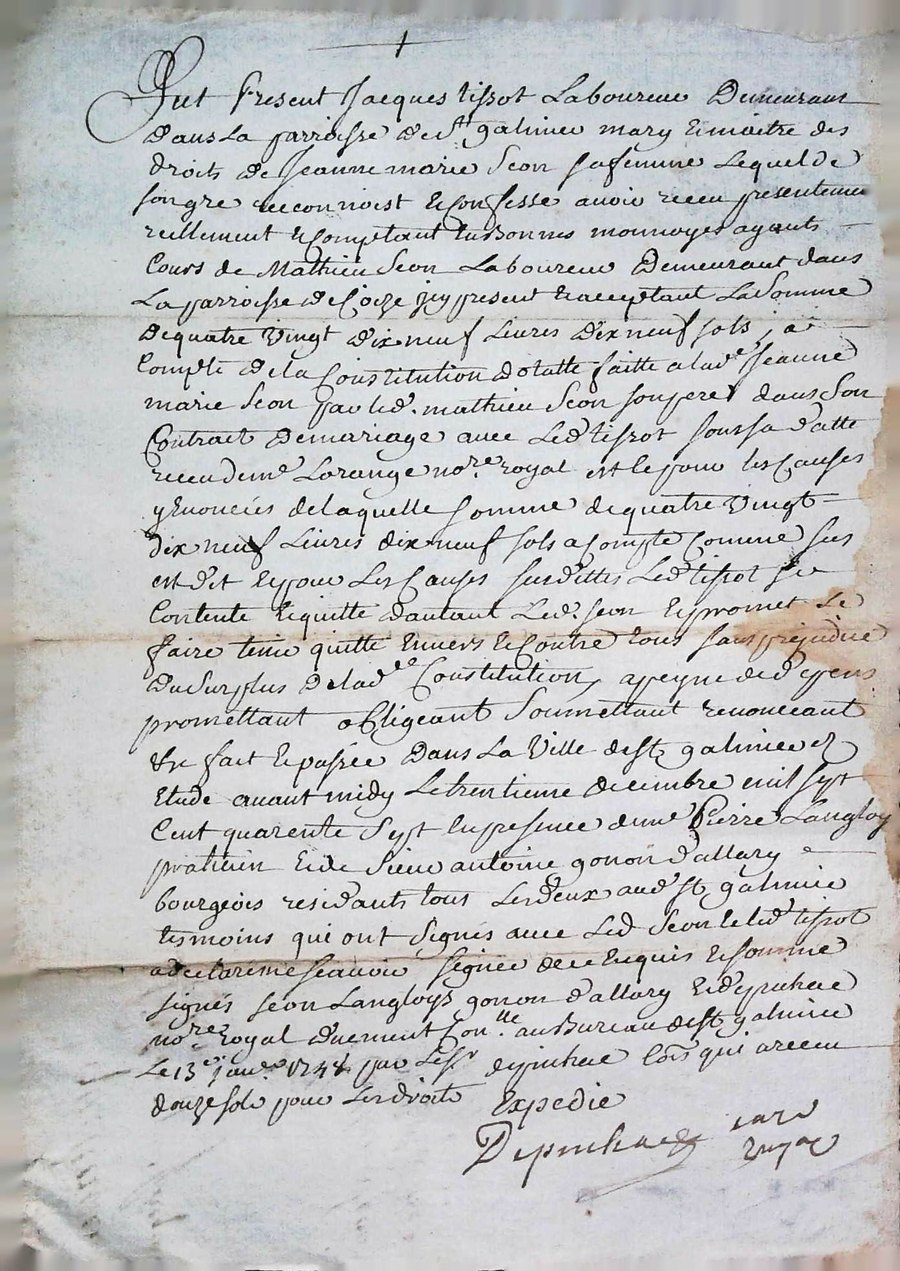 Fut Present Jacques tissot Laboureur Demeurant
dans La parroisse de st galmier mary et maitre des
droits de Jeanne marie Seon sa femme Lequel de
son gre reconnoist et Confesse avoir receu presentement
reellement et Comptant en Bonnes monnoyes ayants
Cours de Mathieu Seon Laboureur Demeurant dans
La parroisse de icy present et acceptant La Somme
De quatre vingt dix neuf Livres dix neuf sols, a
Compte de la Constitution dotalle faitte a lade Jeanne
marie Seon par led. mathieu Seon son pere dans Son
Contrat de mariage avec Led tissot
receu de me Lorange nore royal est le pour les Causes
y Enoncées de laquelle somme de quatre vingt
dix neuf Livres dix neuf sols a Compte Comme sus
est dit et pour Les Causes susdittes Led tissot se
Contente et quitte d'autant Led. Seon et promet Le
faire tenir quitte Envers et Contre tous sans prejudice
Du Surplus De lade Constitution, a peyne de d'epens
promettant obligeant Soumettant renonceant
&c fait et passée Dans La Ville de st galmier et
Etude avant midy Le trentieme decembre mil sept
Cent quarente Sept En presence de me Pierre Langloys
praticien et de Sieur antoine gonon d'allary
bourgeois residants tous Les deux aud st galmier
tesmoins qui ont Signés avec Led Seon et led tissot
a declaré ne sçavoir signer de ce Enquis et somme
signés Seon Langloys gonon d'allary et d'epinhac
nore royal duement Conlle au Bureau de st galmier
Le 13e janvr 1748 par Le sr depinhac Cois qui a receu
douze sols pour Les droits Expedié
Depinhac